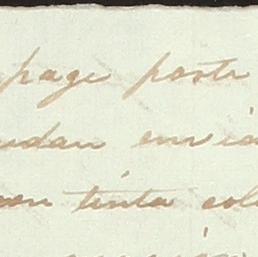 page poste
udan envia
con tinta colo